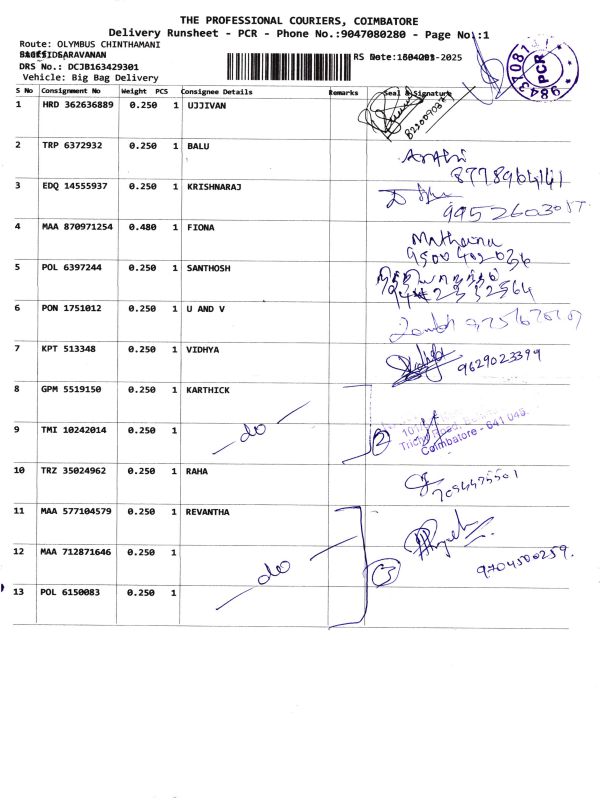 THE PROFESSIONAL COURIERS, COIMBATORE
Delivery Runsheet - PCR - Phone No.:9047080280 - Page No.:1
Route: OLYMBUS CHINTHAMANI
DRS No.: DCJB163429301
Vehicle: Big Bag Delivery
PCR
S No Consignment No Weight PCS Consignee Details Remarks Seal & Signature
1 HRD 362636889 0.250 1 UJJIVAN
2 TRP 6372932 0.250 1 BALU
8778964141
3 EDQ 14555937 0.250 1 KRISHNARAJ
4 MAA 870971254 0.480 1 FIONA
9500402036
5 POL 6397244 0.250 1 SANTHOSH
6 PON 1751012 0.250 1 U AND V
7 KPT 513348 0.250 1 VIDHYA
9629023399
8 GPM 5519150 0.250 1 KARTHICK
9 TMI 10242014 0.250 1 - do - 2
Coimbatore - 641 045.
10 TRZ 35024962 0.250 1 RAHA
11 MAA 577104579 0.250 1 REVANTHA
12 MAA 712871646 0.250 1 - do - 3
9704500259.
13 POL 6150083 0.250 1